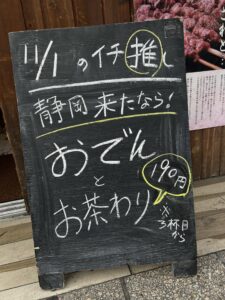 11/1 のイチ推し
静岡 来たなら!
おでん
と
お茶わり
190円
※3杯目から